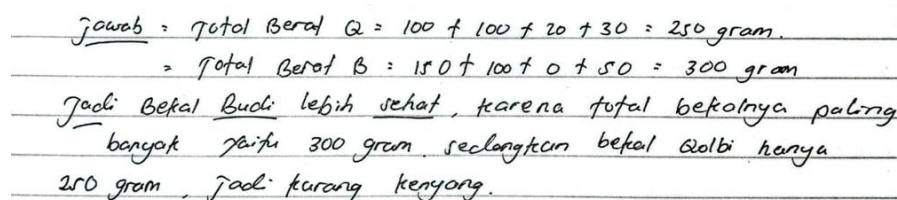 Jawab = Total Berat Q = 100 + 100 + 20 + 30 = 250 gram.
= Total Berat B = 150 + 100 + 0 + 50 = 300 gram
Jadi Bekal Budi lebih sehat, karena total bekalnya paling
banyak yaitu 300 gram. sedangkan bekal Qolbi hanya
250 gram, jadi kurang kenyang.